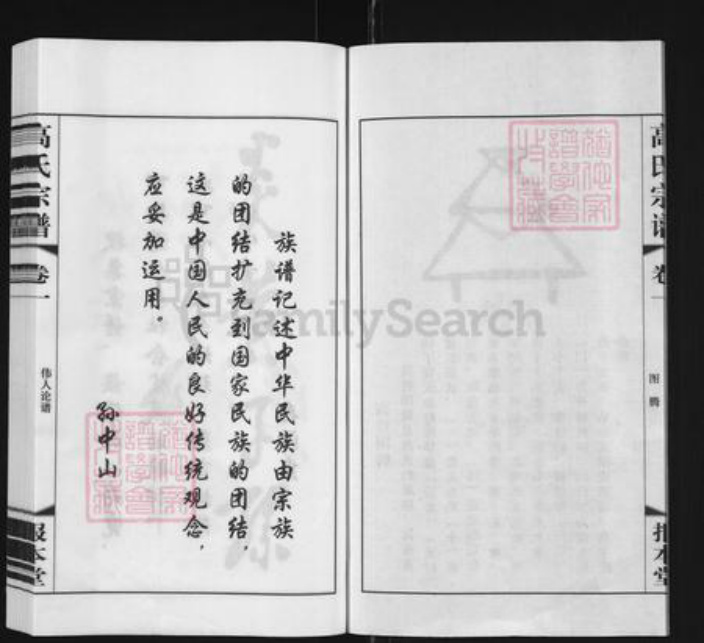 族谱记述中华民族由宗族
的团结扩充到国家民族的团结，
这是中国人民的良好传统观念，
应妥加运用。
孙中山
高氏宗谱
卷一
伟人论谱
报本堂
高氏宗谱
卷一
图腾
报本堂
FamilySearch